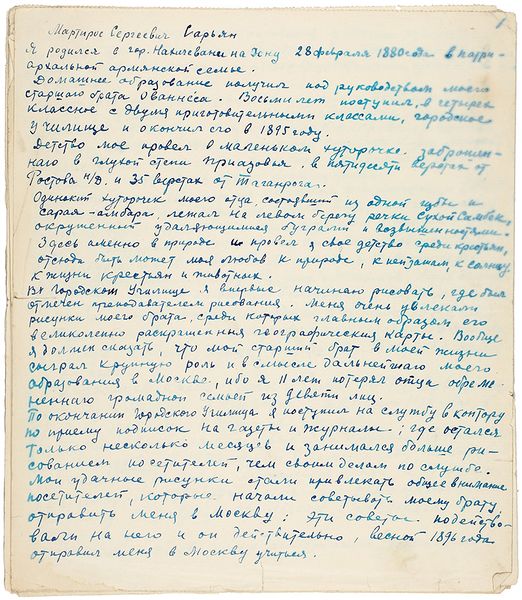 1
Мартирос Сергеевич Сарьян
Я родился в гор. Нахичевани на Дону 28 февраля 1880 года в патри-
архальной армянской семье.
Домашнее образование получил под руководством моего
старшего брата Ованнеса. Восьми лет поступил, в четырех
классное с двумя приготовительными классами, городское
училище и окончил его в 1895 году.
Детство мое провел в маленьком хуторочке, заброшен-
наго в глухой степи Приазовья. в пятидесяти верстах от
Ростова н/Д. и 35 верстах от Таганрога.
Одинокий хуторочек моего отца, состоявший из одной избы и
сарая-амбара, лежал на левом берегу речки Сухой Самбек,
окруженный удаляющимися буграми и возвышенностями.
Здесь именно в природе и провел я свое детство среди крестьян,
отсюда быть может моя любовь к природе, к пейзажам к солнцу,
к жизни крестьян и животных.
В Городском Училище я впервые начинаю рисовать, где был
отмечен преподавателем рисования. Меня очень увлекали
рисунки моего брата, среди которых главным образом его
великолепно раскрашенныя географическия карты. Вообще
я должен сказать, что мой старший брат в моей жизни
сыграл крупную роль и в смысле дальнейшаго моего
образования в Москве, ибо я 11 лет потерял отца обреме-
неннаго громадной семьей из девяти лиц.
По окончании Городского Училища я поступил на службу в контору
по приему подписок на газеты и журналы; где остался
только несколько месяцев и занимался больше ри-
сованием посетителей, чем своим делом по службе.
Мои удачные рисунки стали привлекать общее внимание
посетителей, которые начали советывать моему брату,
отправить меня в Москву; Эти советы подейство-
вали на него и он действительно, весной 1896 года
отправил меня в Москву учиться.